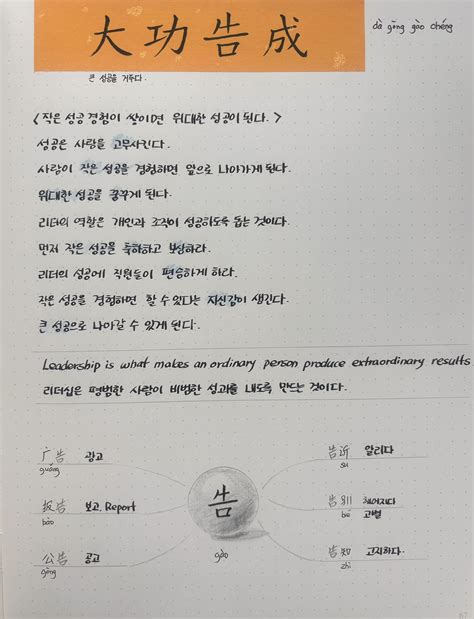 大功告成
dà gōng gào chéng
큰 성공을 거두다.
〈작은 성공 경험이 쌓이면 위대한 성공이 된다.〉
성공은 사람을 고무시킨다.
사람이 작은 성공을 경험하면 앞으로 나아가게 된다.
위대한 성공을 꿈꾸게 된다.
리더의 역할은 개인과 조직이 성공하도록 돕는 것이다.
먼저 작은 성공을 축하하고 보상하라.
리더의 성공에 직원들이 편승하게 하라.
작은 성공을 경험하면 할 수 있다는 자신감이 생긴다.
큰 성공으로 나아갈 수 있게 된다.
Leadership is what makes an ordinary person produce extraordinary results
리더십은 평범한 사람이 비범한 성과를 내도록 만드는 것이다.
广告 광고
guǎng
报告 보고, Report
bào
公告 공고
gōng
告
gào
告诉 알리다
su
告别 헤어지다
고별
bié
告知 고지하다.
zhī
67